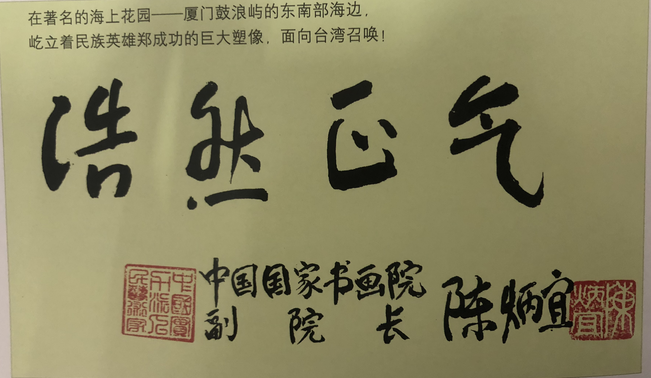 在著名的海上花园——厦门鼓浪屿的东南部海边，
屹立着民族英雄郑成功的巨大塑像，面向台湾召唤！
浩然正气
中国国家书画院
副院长
陈炳宜
陈炳宜